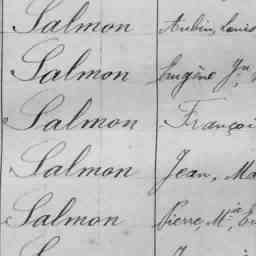 Salmon Aubin, Louis
Salmon Eugène Jn
Salmon Françoi
Salmon Jean, Ma
Salmon Pierre, M